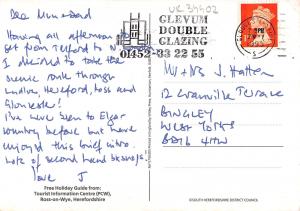 UK 39402
Dear Mum & Dad
Having all afternoon to
get from Telford to N
I decided to take the
scenic route through
Ludlow, Hereford, Ross and
Gloucester!
I've been to Elgar
country before but have
enjoyed this brief intro.
Lots of second hand bookshops
Love J
Free Holiday Guide from:
Tourist Information Centre (PCW),
Ross-on-Wye, Herefordshire
GLEVUM
DOUBLE
GLAZING
01452 - 83 22 55
Mr & Mrs J. Hatton
12 Granville Terrace
BINGLEY
WEST YORKS
BD16 4HW
©SOUTH HEREFORDSHIRE DISTRICT COUNCIL